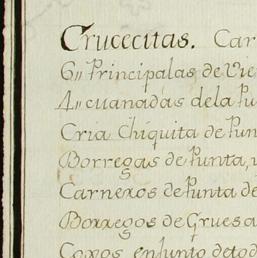 Crucecitas. Car
6,, Principalas de Vie
4,, cuanadas de la Pu
Cria Chiquita de Pun
Borregas de Punta, y
Carneros de Punta de
Borregos de Gruesa
Coxos, en Junto de tod